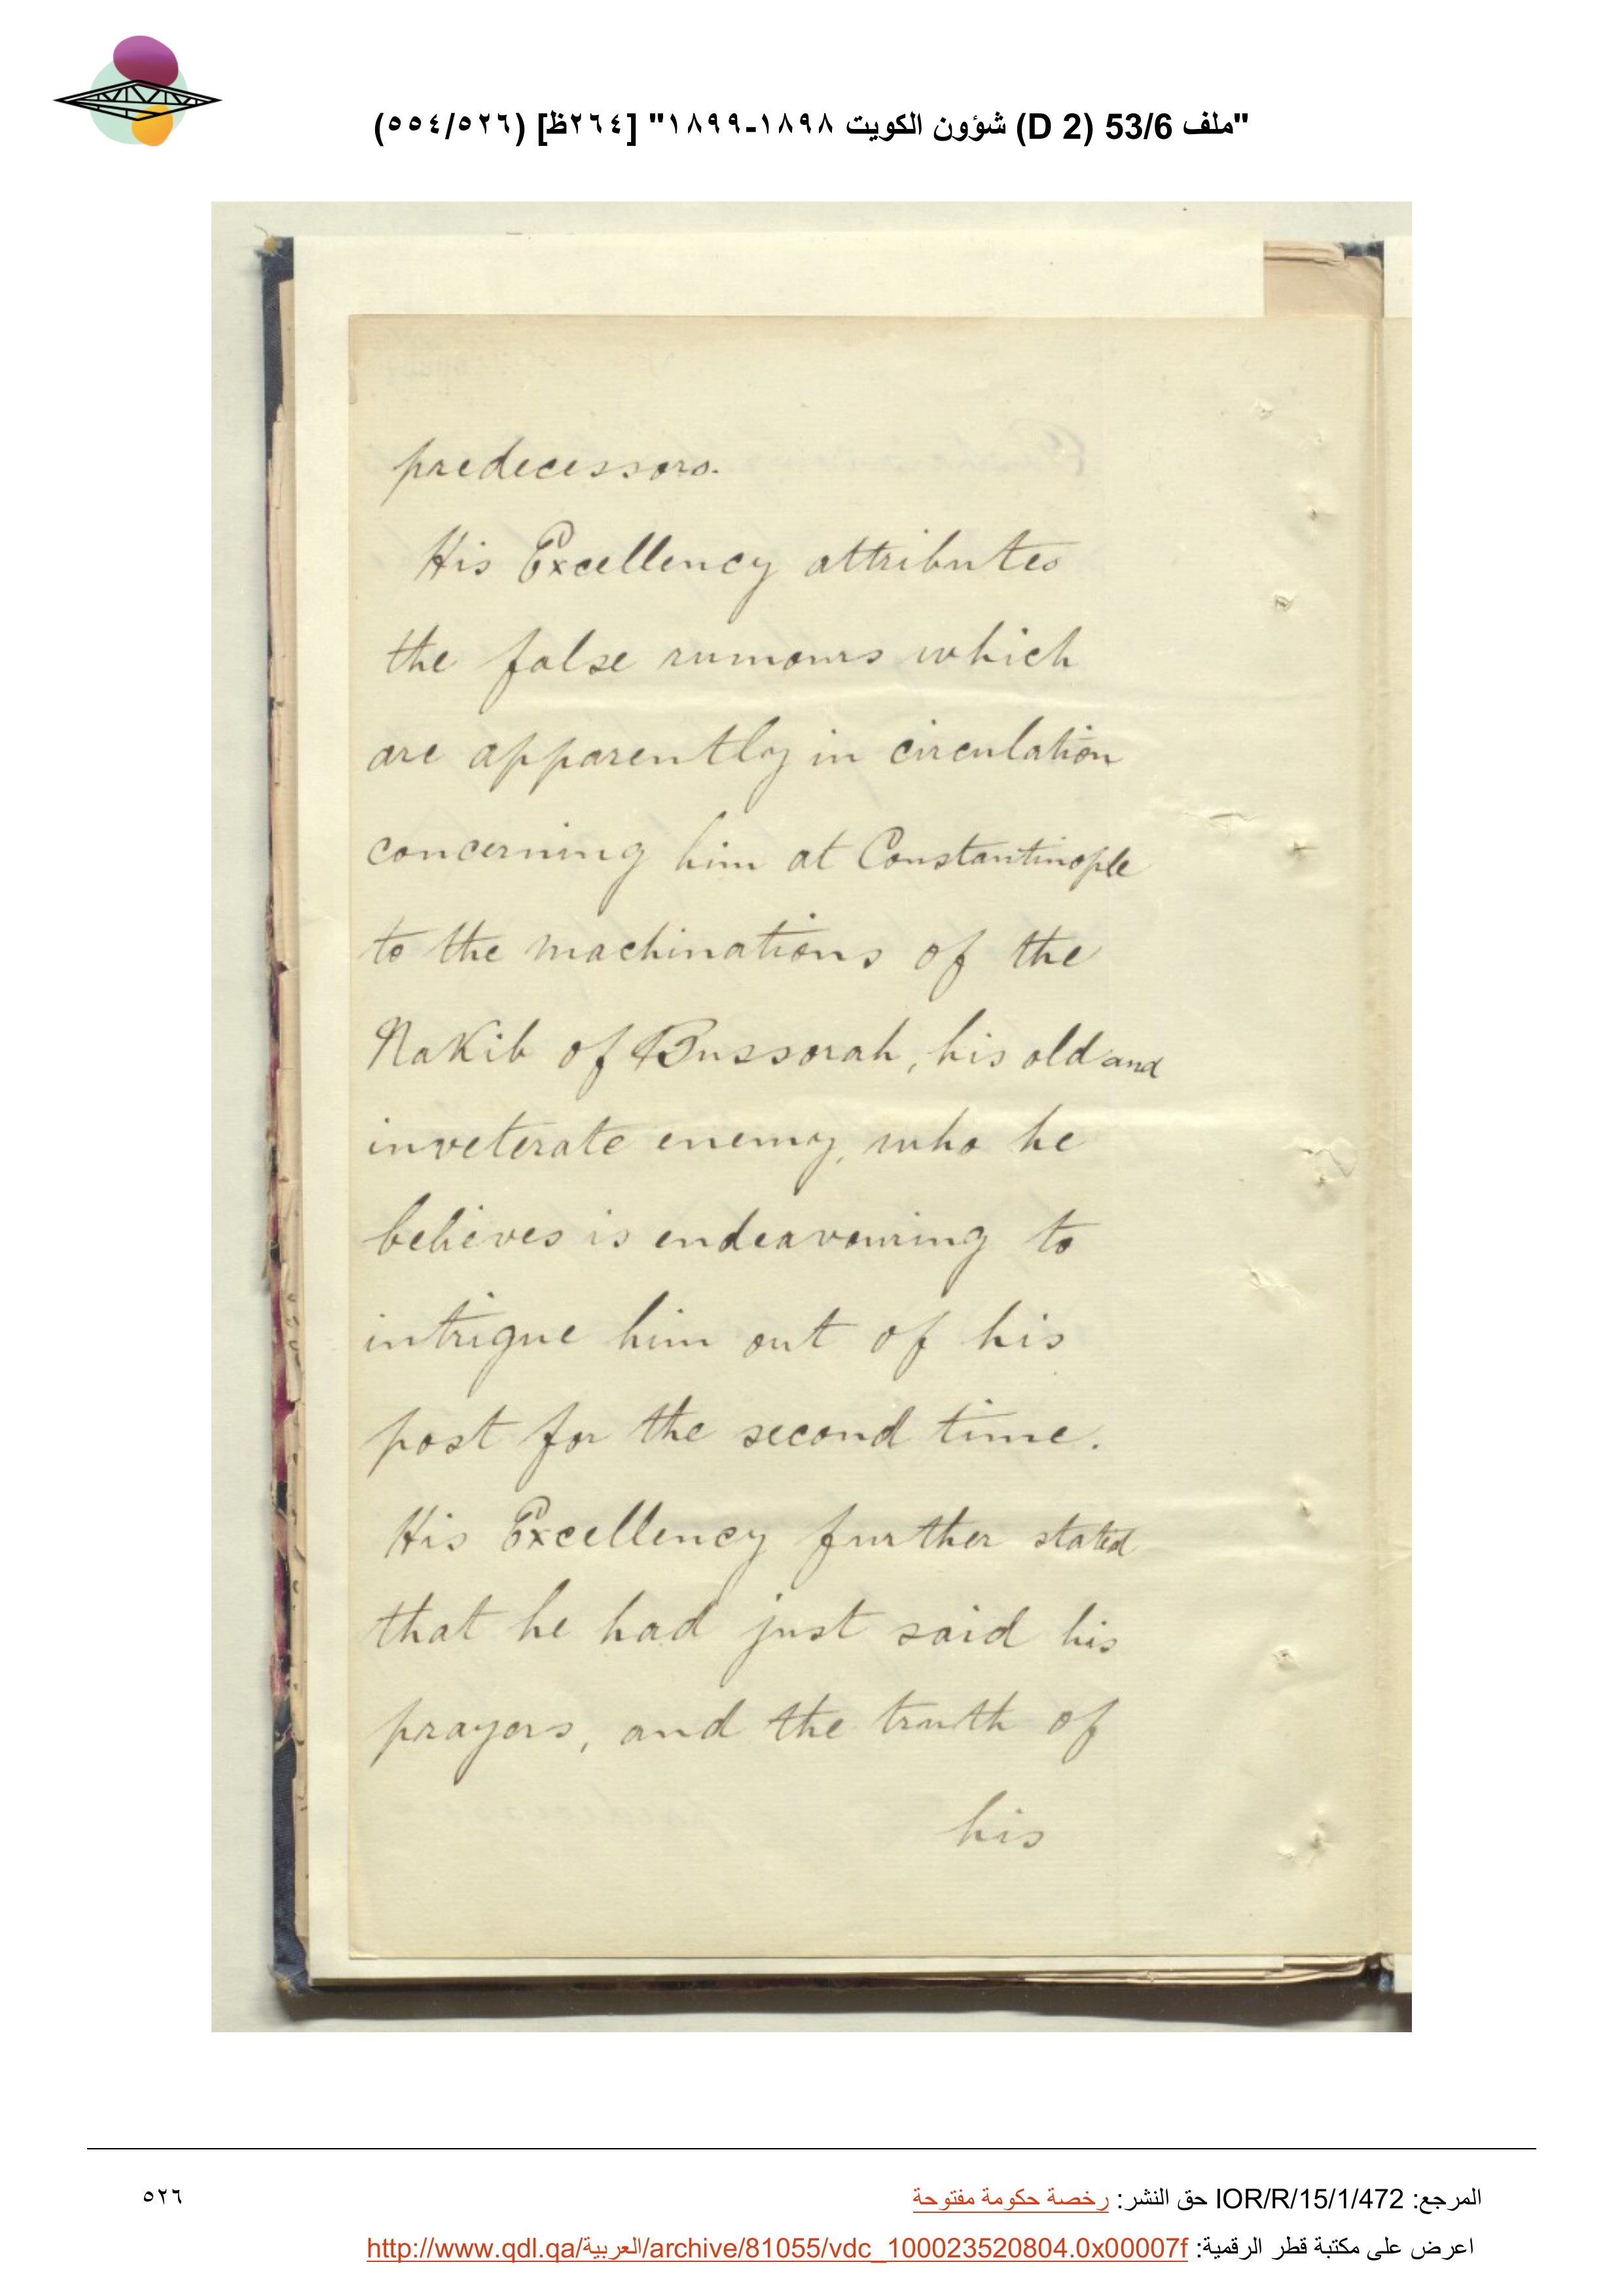 "ملف 53/6 (D 2) شؤون الكويت ١٨٩٨-١٨٩٩" [٢٦٤ظ] (٥٥٤/٥٢٦)
predecessors.
His Excellency attributes
the false rumours which
are apparently in circulation
concerning him at Constantinople
to the machinations of the
Nakib of Bussorah, his old and
inveterate enemy, who he
believes is endeavouring to
intrigue him out of his
post for the second time.
His Excellency further stated
that he had just said his
prayers, and the truth of
his
المرجع: IOR/R/15/1/472 حق النشر: رخصة حكومة مفتوحة
٥٢٦
اعرض على مكتبة قطر الرقمية: http://www.qdl.qa/العربية/archive/81055/vdc_100023520804.0x00007f